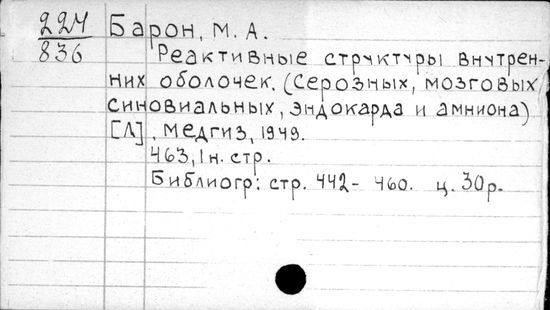 224
836
Барон, М. А.
Реактивные структуры внутрен-
них оболочек. (серозных, мозговых
синовиальных, эндокарда и амниона)
[Л], Медгиз, 1949.
463, 1 н. стр.
Библиогр: стр. 442- 460. ц. 30 р.